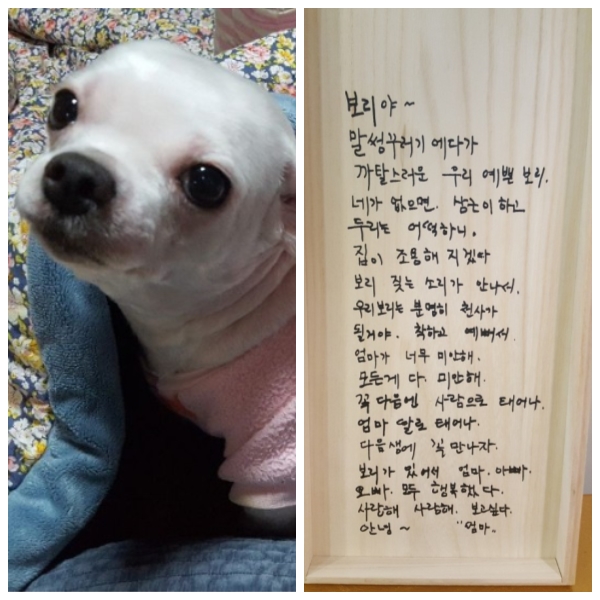 보리야~
말썽꾸러기 에다가
까탈스러운 우리 예쁜 보리.
네가 없으면. 삼근이 하고
두리는 어떡하니.
집이 조용해 지겠다
보리 짖는 소리가 안나서.
우리보리는 분명히 천사가
될거야. 착하고 예뻐서.
엄마가 너무 미안해.
모든게 다. 미안해.
꼭 다음엔 사람으로 태어나.
엄마 딸로 태어나.
다음생에 꼭 만나자.
보리가 있어서 엄마. 아빠.
오빠. 모두 행복했다.
사랑해 사랑해. 보고싶다.
안녕~ "엄마"